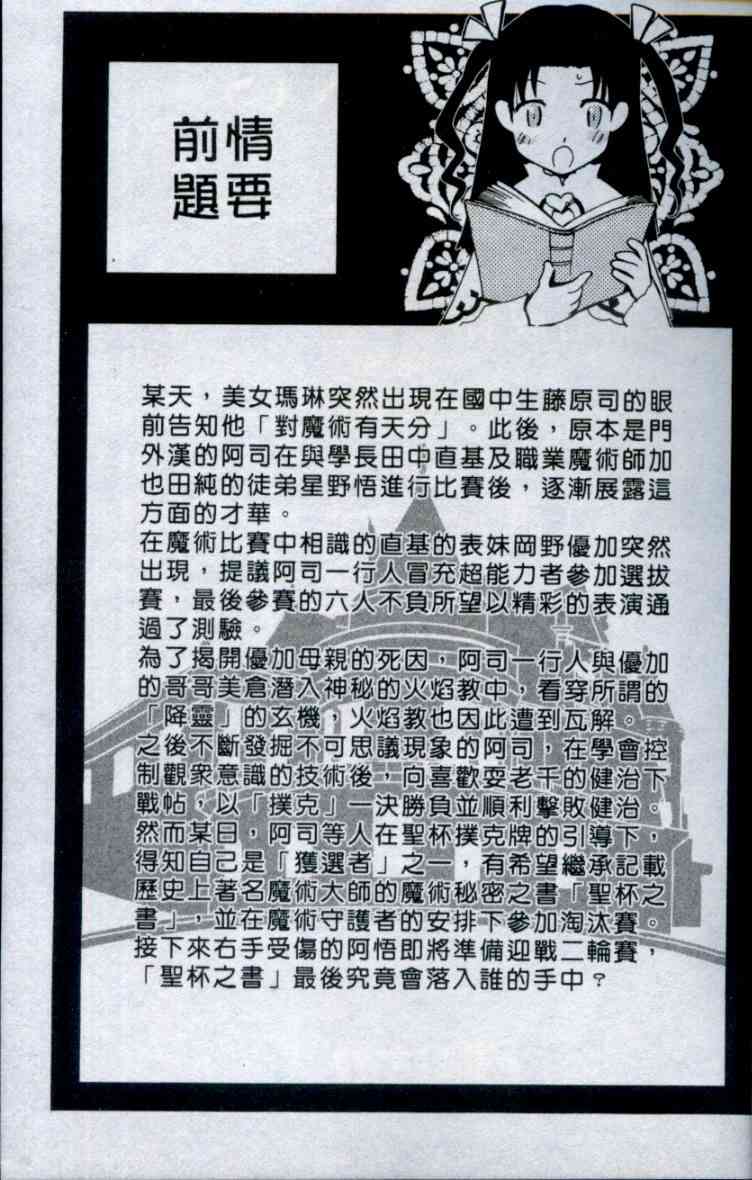 前情
題要
某天，美女瑪琳突然出現在國中生藤原司的眼
前告知他「對魔術有天分」。此後，原本是門
外漢的阿司在與學長田中直基及職業魔術師加
也田純的徒弟星野悟進行比賽後，逐漸展露這
方面的才華。
在魔術比賽中相識的直基的表妹岡野優加突然
出現，提議阿司一行人冒充超能力者參加選拔
賽，最後參賽的六人不負所望以精彩的表演通
過了測驗。
為了揭開優加母親的死因，阿司一行人與優加
的哥哥美倉潛入神秘的火焰教中，看穿所謂的
「降靈」的玄機，火焰教也因此遭到瓦解。
之後不斷發掘不可思議現象的阿司，在學會控
制觀眾意識的技術後，向喜歡耍老千的健治下
戰帖，以「撲克」一決勝負並順利擊敗健治。
然而某日，阿司等人在聖杯撲克牌的引導下，
得知自己是「獲選者」之一，有希望繼承記載
歷史上著名魔術大師的魔術秘密之書「聖杯之
書」，並在魔術守護者的安排下參加淘汰賽。
接下來右手受傷的阿悟即將準備迎戰二輪賽，
「聖杯之書」最後究竟會落入誰的手中？